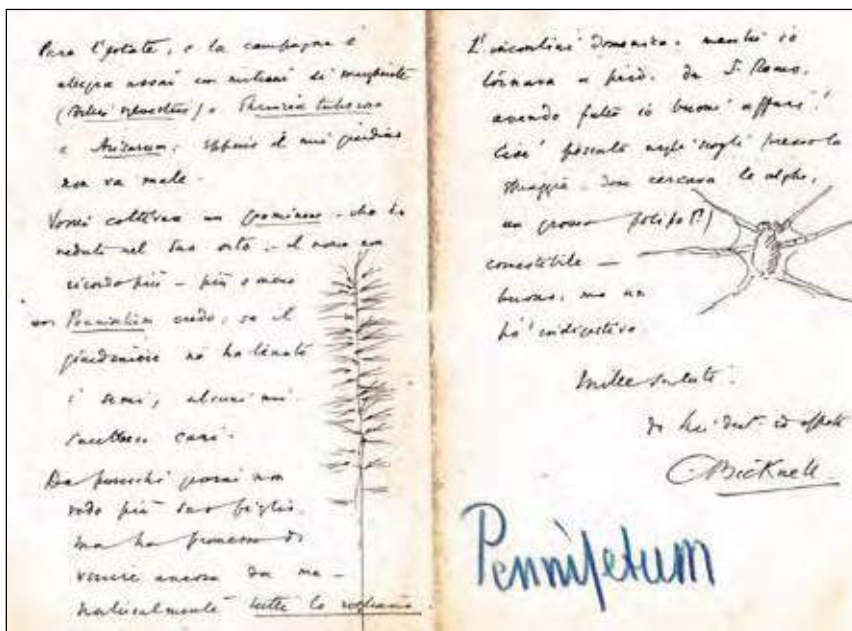 Pare l'estate, e la campagna è
allegra assai con milioni di margherite
(Bellis sylvestris) e Thrincia tuberosa
e Arisarum; eppure il mio giardino
non va male.
Vorrei coltivare un graminea - che ho
veduto nel Suo orto - il nome non
ricordo più - più o meno
un Pennisetum credo; se il
giardiniere ne ha tenuto
i semi, alcuni mi
cari.
Da parecchi giorni non
vedo più suo figlio
ma ha promesso di
venire ancora da me -
Naturalmente tutti lo vogliamo.
L'incontrai domenica, mentre io
tornava a piedi da S. Remo,
avendo fatto io buoni affari!
Cioè pescato negli scogli presso la
spiaggia - dove cercava le alghe,
un grosso polipo (?)
comestibile -
buono, ma un
po' indigestivo.
Mille saluti.
di Lei dev. ed
CBicknell
Pennisetum